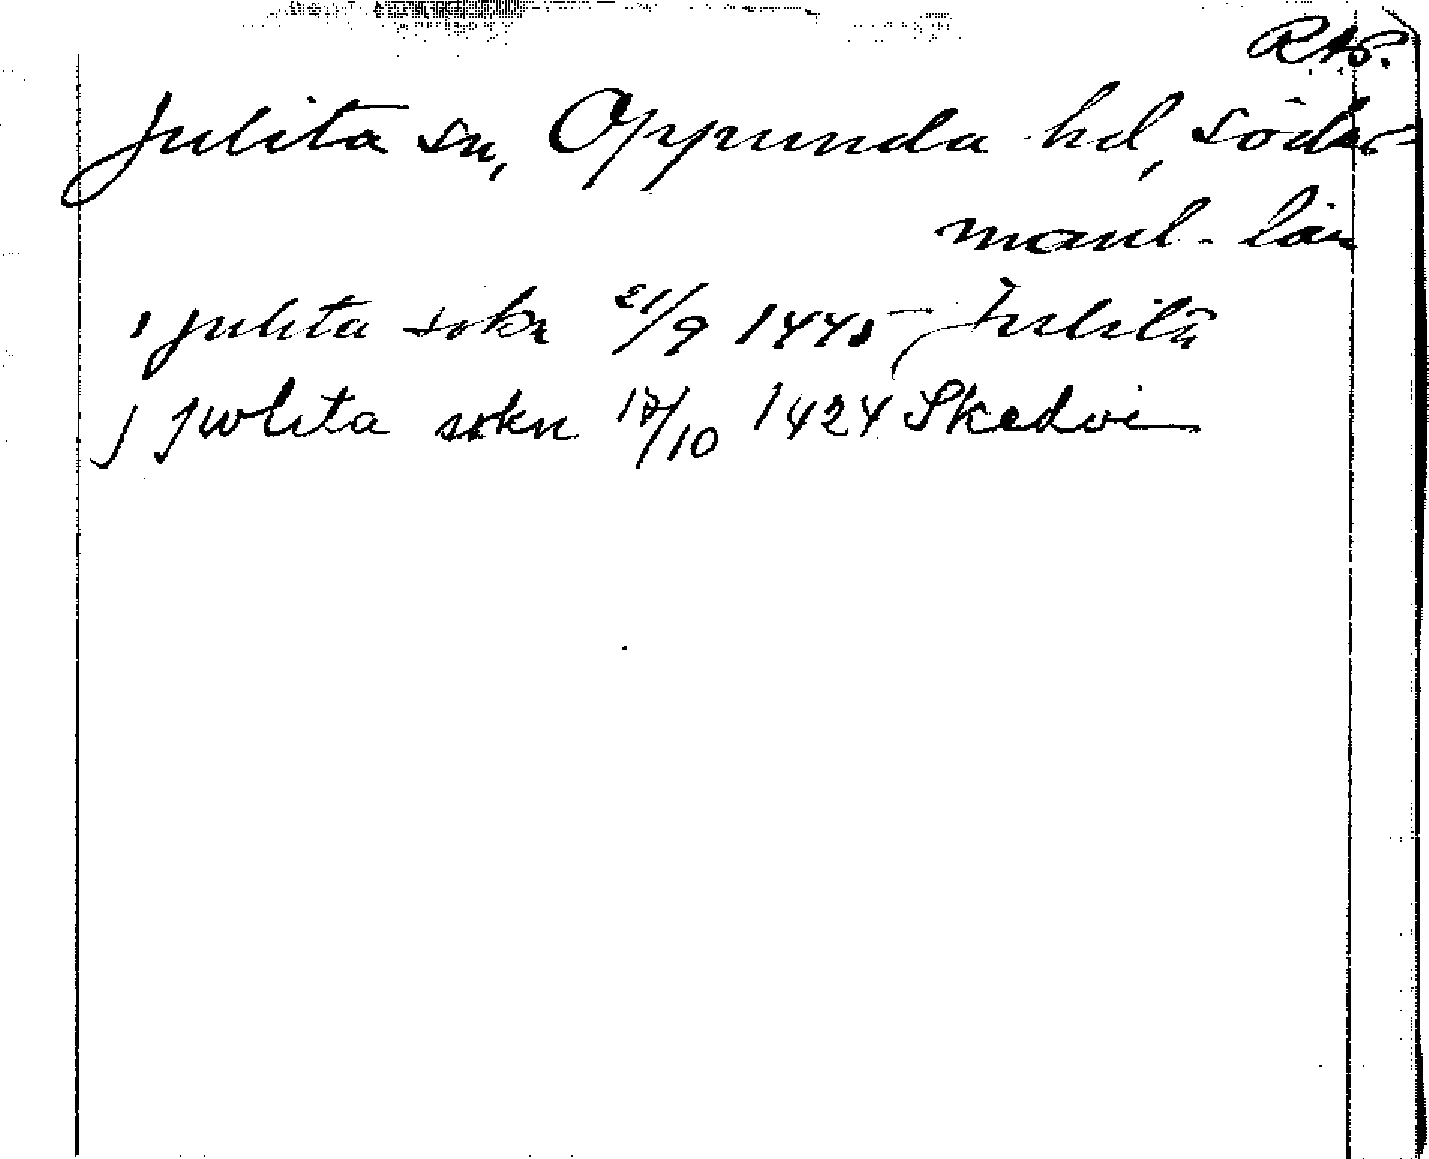 RAp.
Julita sn, Oppunda hd, Söder-
manl. län
i julita sokn 21/9 1445 Julita
j jwlita sokn 17/10 1424 Skedvi